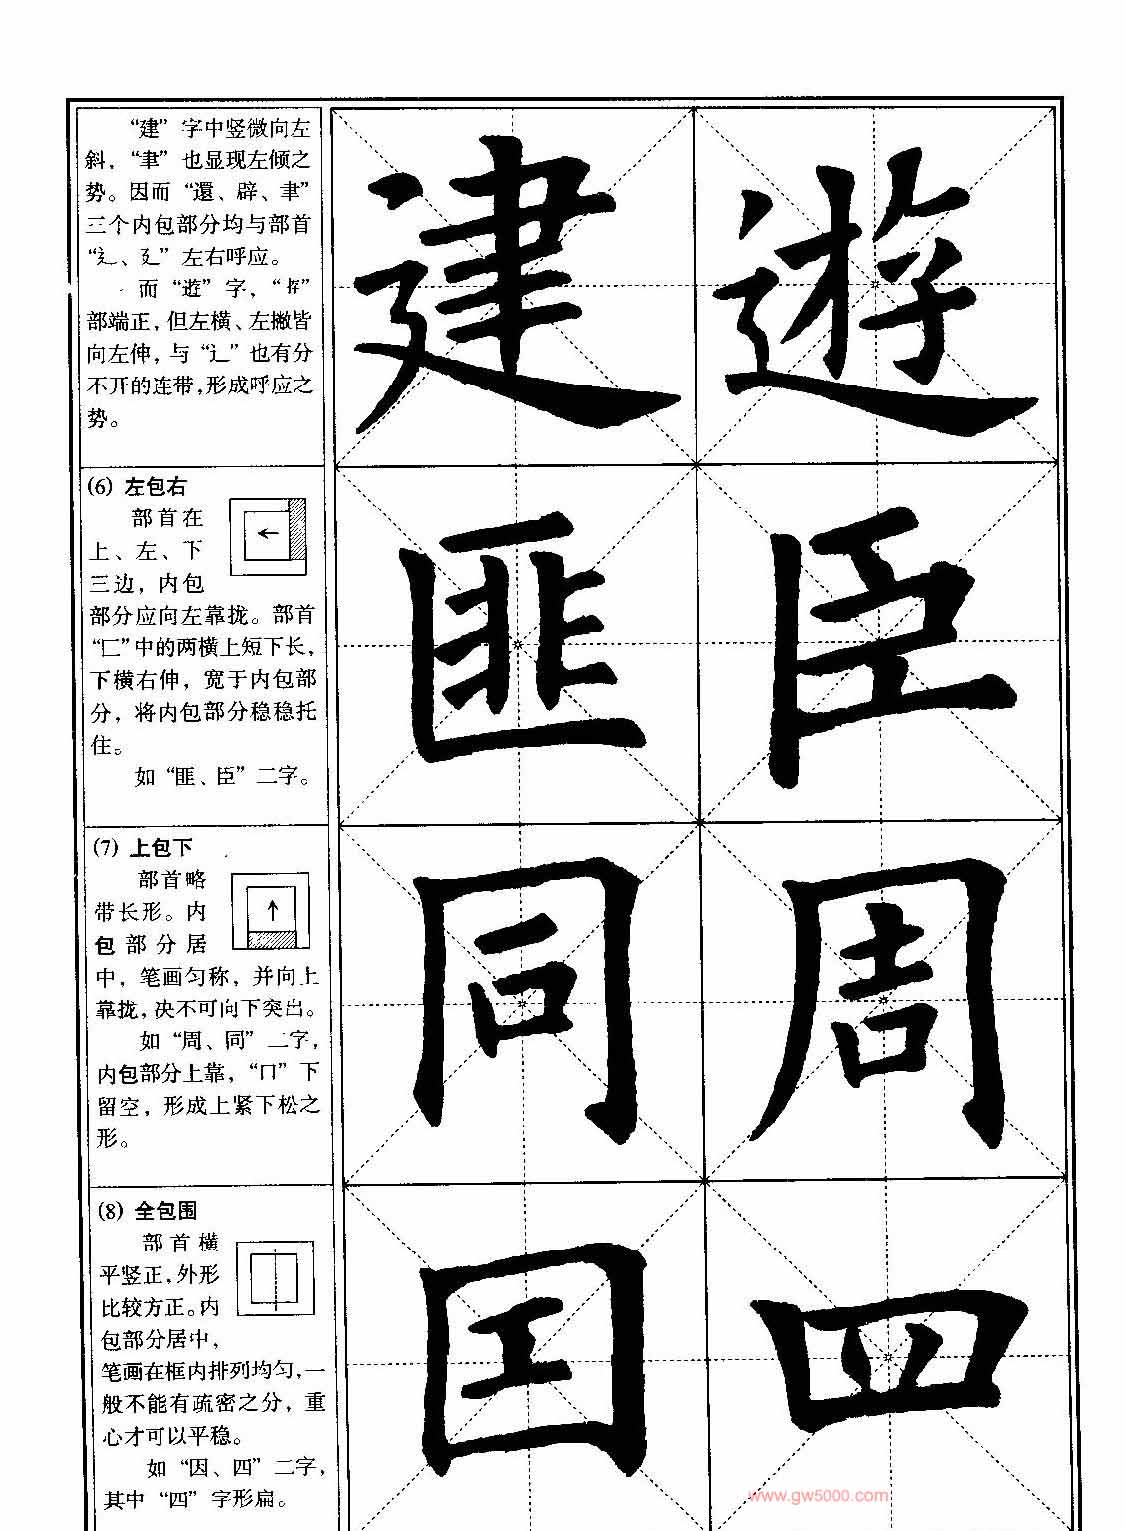 “建”字中竖微向左
斜，“聿”也显现左倾之
势。因而“還、辟、聿”
三个内包部分均与部首
“辶、廴”左右呼应。
而“遊”字，“斿”
部端正，但左横、左撇皆
向左伸，与“辶”也有分
不开的连带，形成呼应之
势。
(6) 左包右
部首在
上、左、下
三边，内包
部分应向左靠拢。部首
“匚”中的两横上短下长，
下横右伸，宽于内包部
分，将内包部分稳稳托
住。
如“匪、臣”二字。
(7) 上包下
部首略
带长形。内
包部分居
中，笔画匀称，并向上
靠拢，决不可向下突出。
如“周、同”二字，
内包部分上靠，“冂”下
留空，形成上紧下松之
形。
(8) 全包围
部首横
平竖正，外形
比较方正。内
包部分居中，
笔画在框内排列均匀，一
般不能有疏密之分，重
心才可以平稳。
如“因、四”二字，
其中“四”字形扁。
建 遊
匪 臣
同 周
因 四
www.gw5000.com